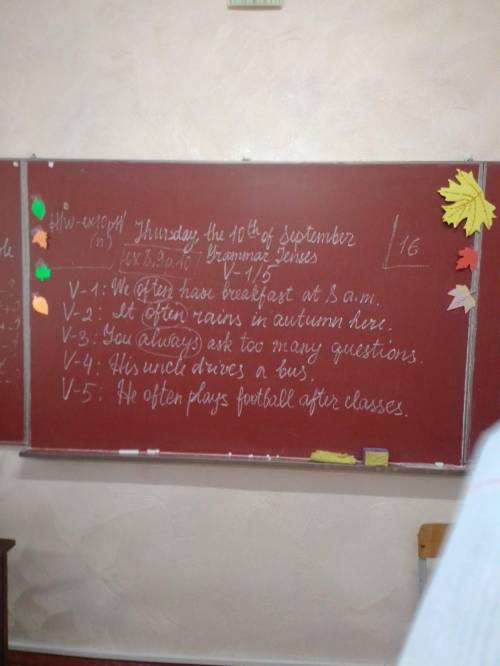 H/w - ex10p11
(n)
Thursday, the 10th of September
16
ex 8,9 p.10 Grammar Tenses
V-1/5
V-1: We often have breakfast at 8 a.m.
V-2: It often rains in autumn here.
V-3: You always ask too many questions.
V-4: His uncle drives a bus.
V-5: He often plays football after classes.